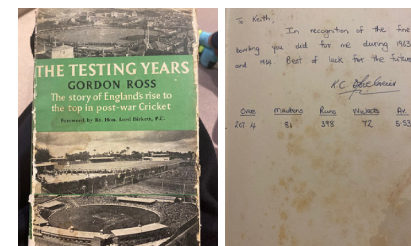 THE TESTING YEARS
GORDON ROSS
The story of England's rise to
the top in post-war Cricket
Foreword by Rt. Hon. Lord Birkett, P.C.
To Keith.
In recognition of the fine
bowling you did for me during 1963
and 1964. Best of luck for the future
K.C.
Overs Maidens Runs Wickets Av.
267.4 86 398 72 5.53